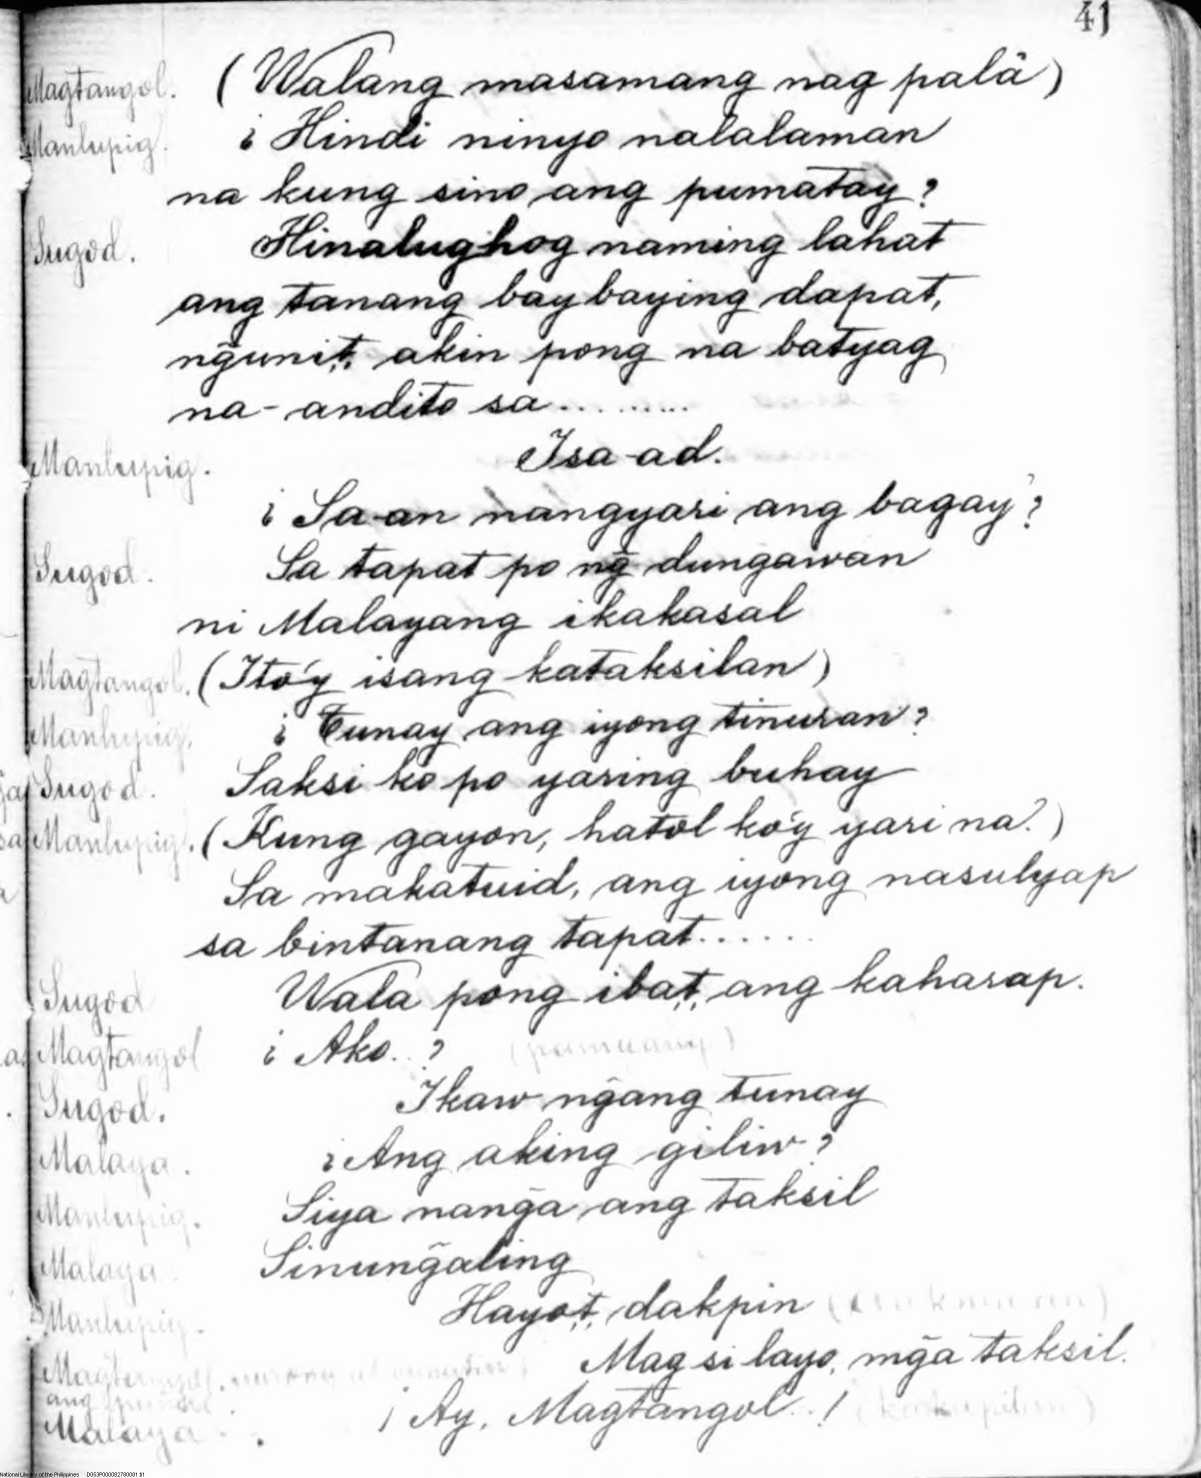 41
Magtangol. (Walang masamang nag palà)
Manlupig. ¿ Hindi ninyo nalalaman
na kung sino ang pumatay?
Sugod. Hinalughog naming lahat
ang tanang baybaying dapat,
ng̃unit, akin pong na batyag
na-andito sa.........
Manlupig. Isa-ad.
¿ Sa-an nangyari ang bagay?
Sugod. Sa tapat po ng̃ dung̃awan
ni Malayang ikakasal
Magtangol. (Ito'y isang kataksilan)
Manlupig. ¿ Tunay ang iyong tinuran?
Sugod. Saksi ko po yaring buhay
Manlupig. (Kung gayon, hatol ko'y yari na.)
Sa makatuid, ang iyong nasulyap
sa bintanang tapat......
Sugod Wala pong ibat, ang kaharap.
Magtangol ¿ Ako..?
Sugod. Ikaw ng̃ang tunay
Malaya. ¿ Ang aking giliw?
Manlupig. Siya nang̃a ang taksil
Malaya. Sinung̃aling
Manlupig. Hayot, dakpin
Magtangol. Mag si layo, mg̃a taksil.
Malaya ¡ Ay, Magtangol..!
National Library of the Philippines